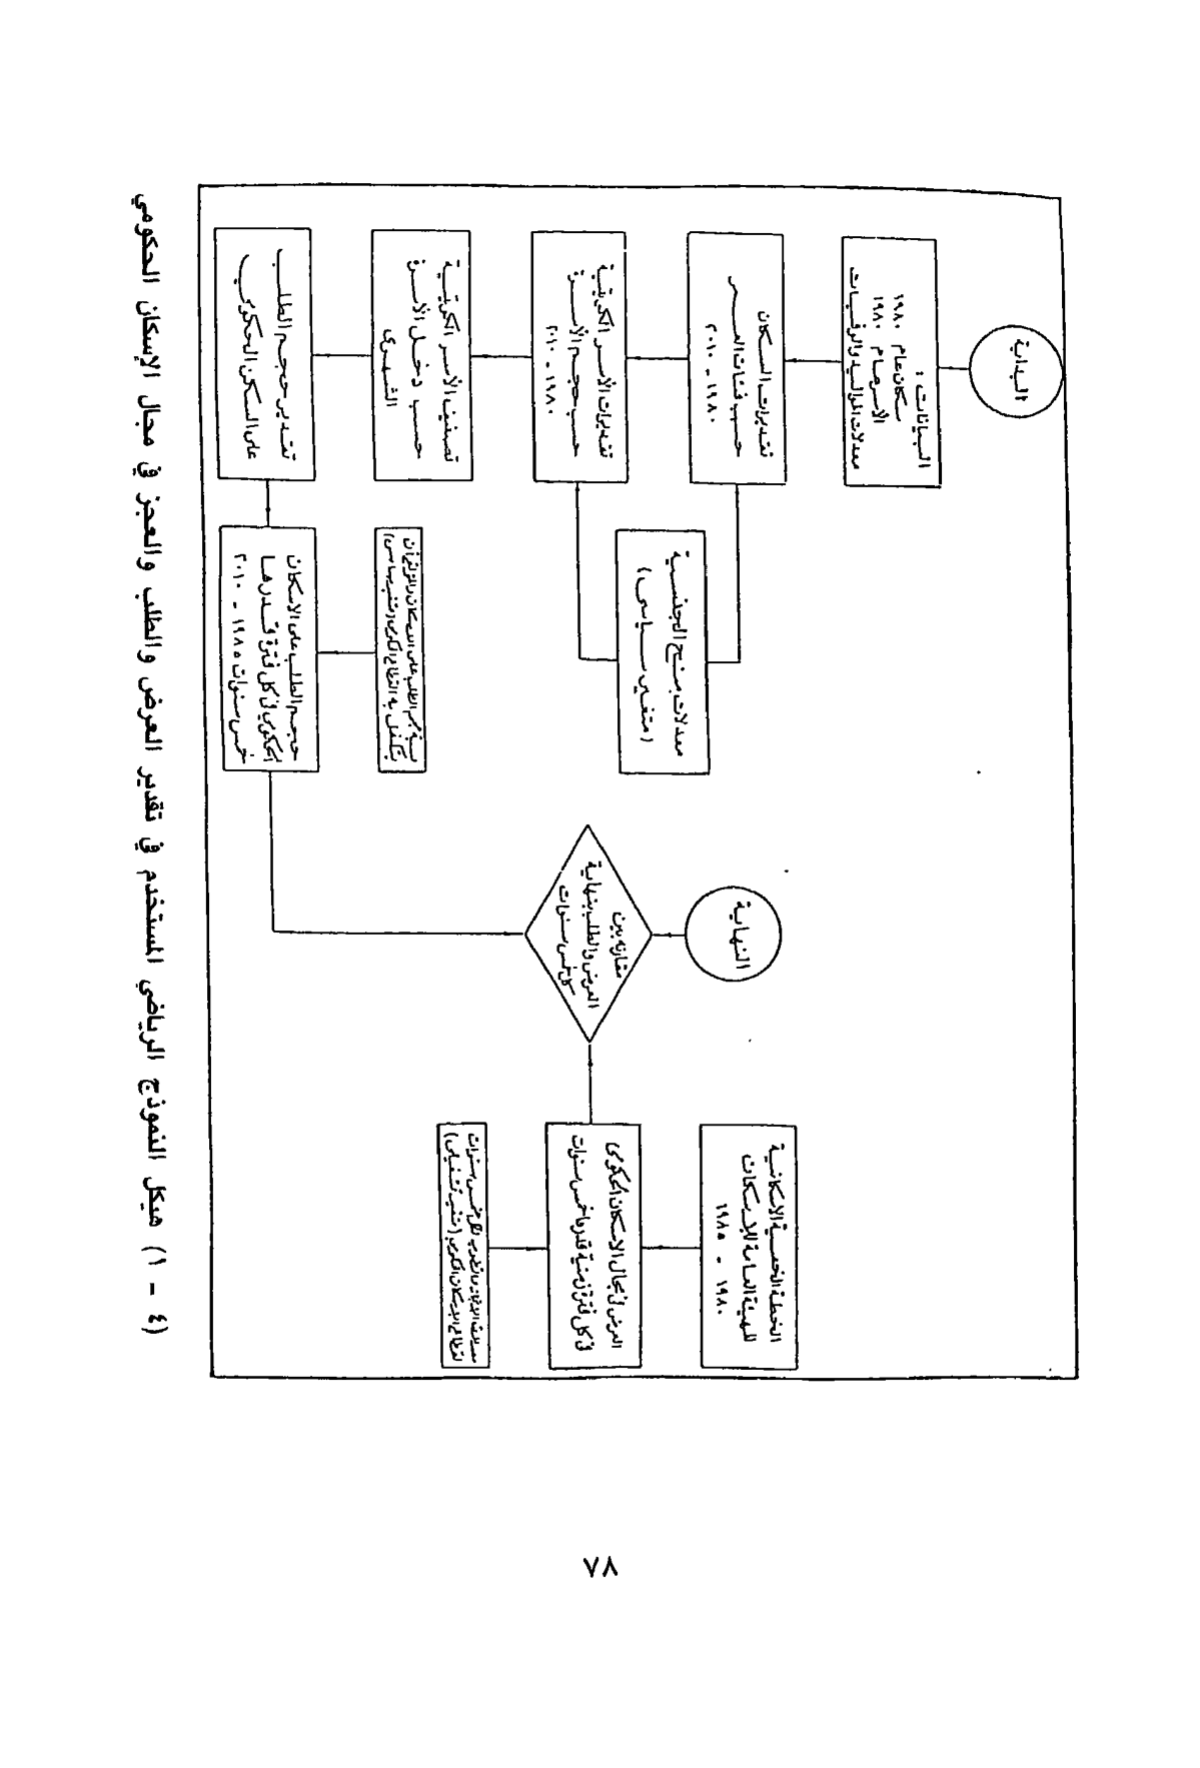 البداية
البيانات :
سكان عام ١٩٨٠
الأسر عام ١٩٨٠
معدلات المواليد والوفيات
تقديرات السكان
حسب فئات العمر
١٩٨٠ - ٢٠١٠
معدلات منح الجنسية
(متغير سياسي)
تقديرات الأسر الكويتية
حسب حجم الأسرة
١٩٨٠ - ٢٠١٠
تصنيف الأسر الكويتية
حسب دخل الأسرة
الشهري
تقدير حجم الطلب
على السكن الحكومي
حجم الطلب على الاسكان
الحكومي في كل فترة قدرها
خمس سنوات ١٩٨٥ - ٢٠١٠
الطلب على الاسكان
يتكفل به القطاع
النهاية
مقارنة بين
العرض والطلب بنهاية
كل خمس سنوات
الخطة الخمسية الاسكانية
للهيئة العامة للإسكان
١٩٨٠ - ١٩٨٥
العرض في مجال الاسكان الحكومى
في كل فترة زمنية قدرها خمس سنوات
لكل خمس سنوات
لقطاع الاسكان الحكومي
(٤ - ١) هيكل النموذج الرياضي المستخدم في تقدير العرض والطلب والعجز في مجال الإسكان الحكومي
٧٨